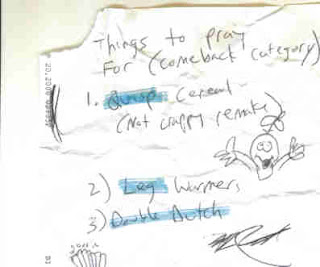 Things to pray
For (comeback category)
1. Quisp Cereal
(Not crappy remake)
2) Leg Warmers
3) Double Dutch